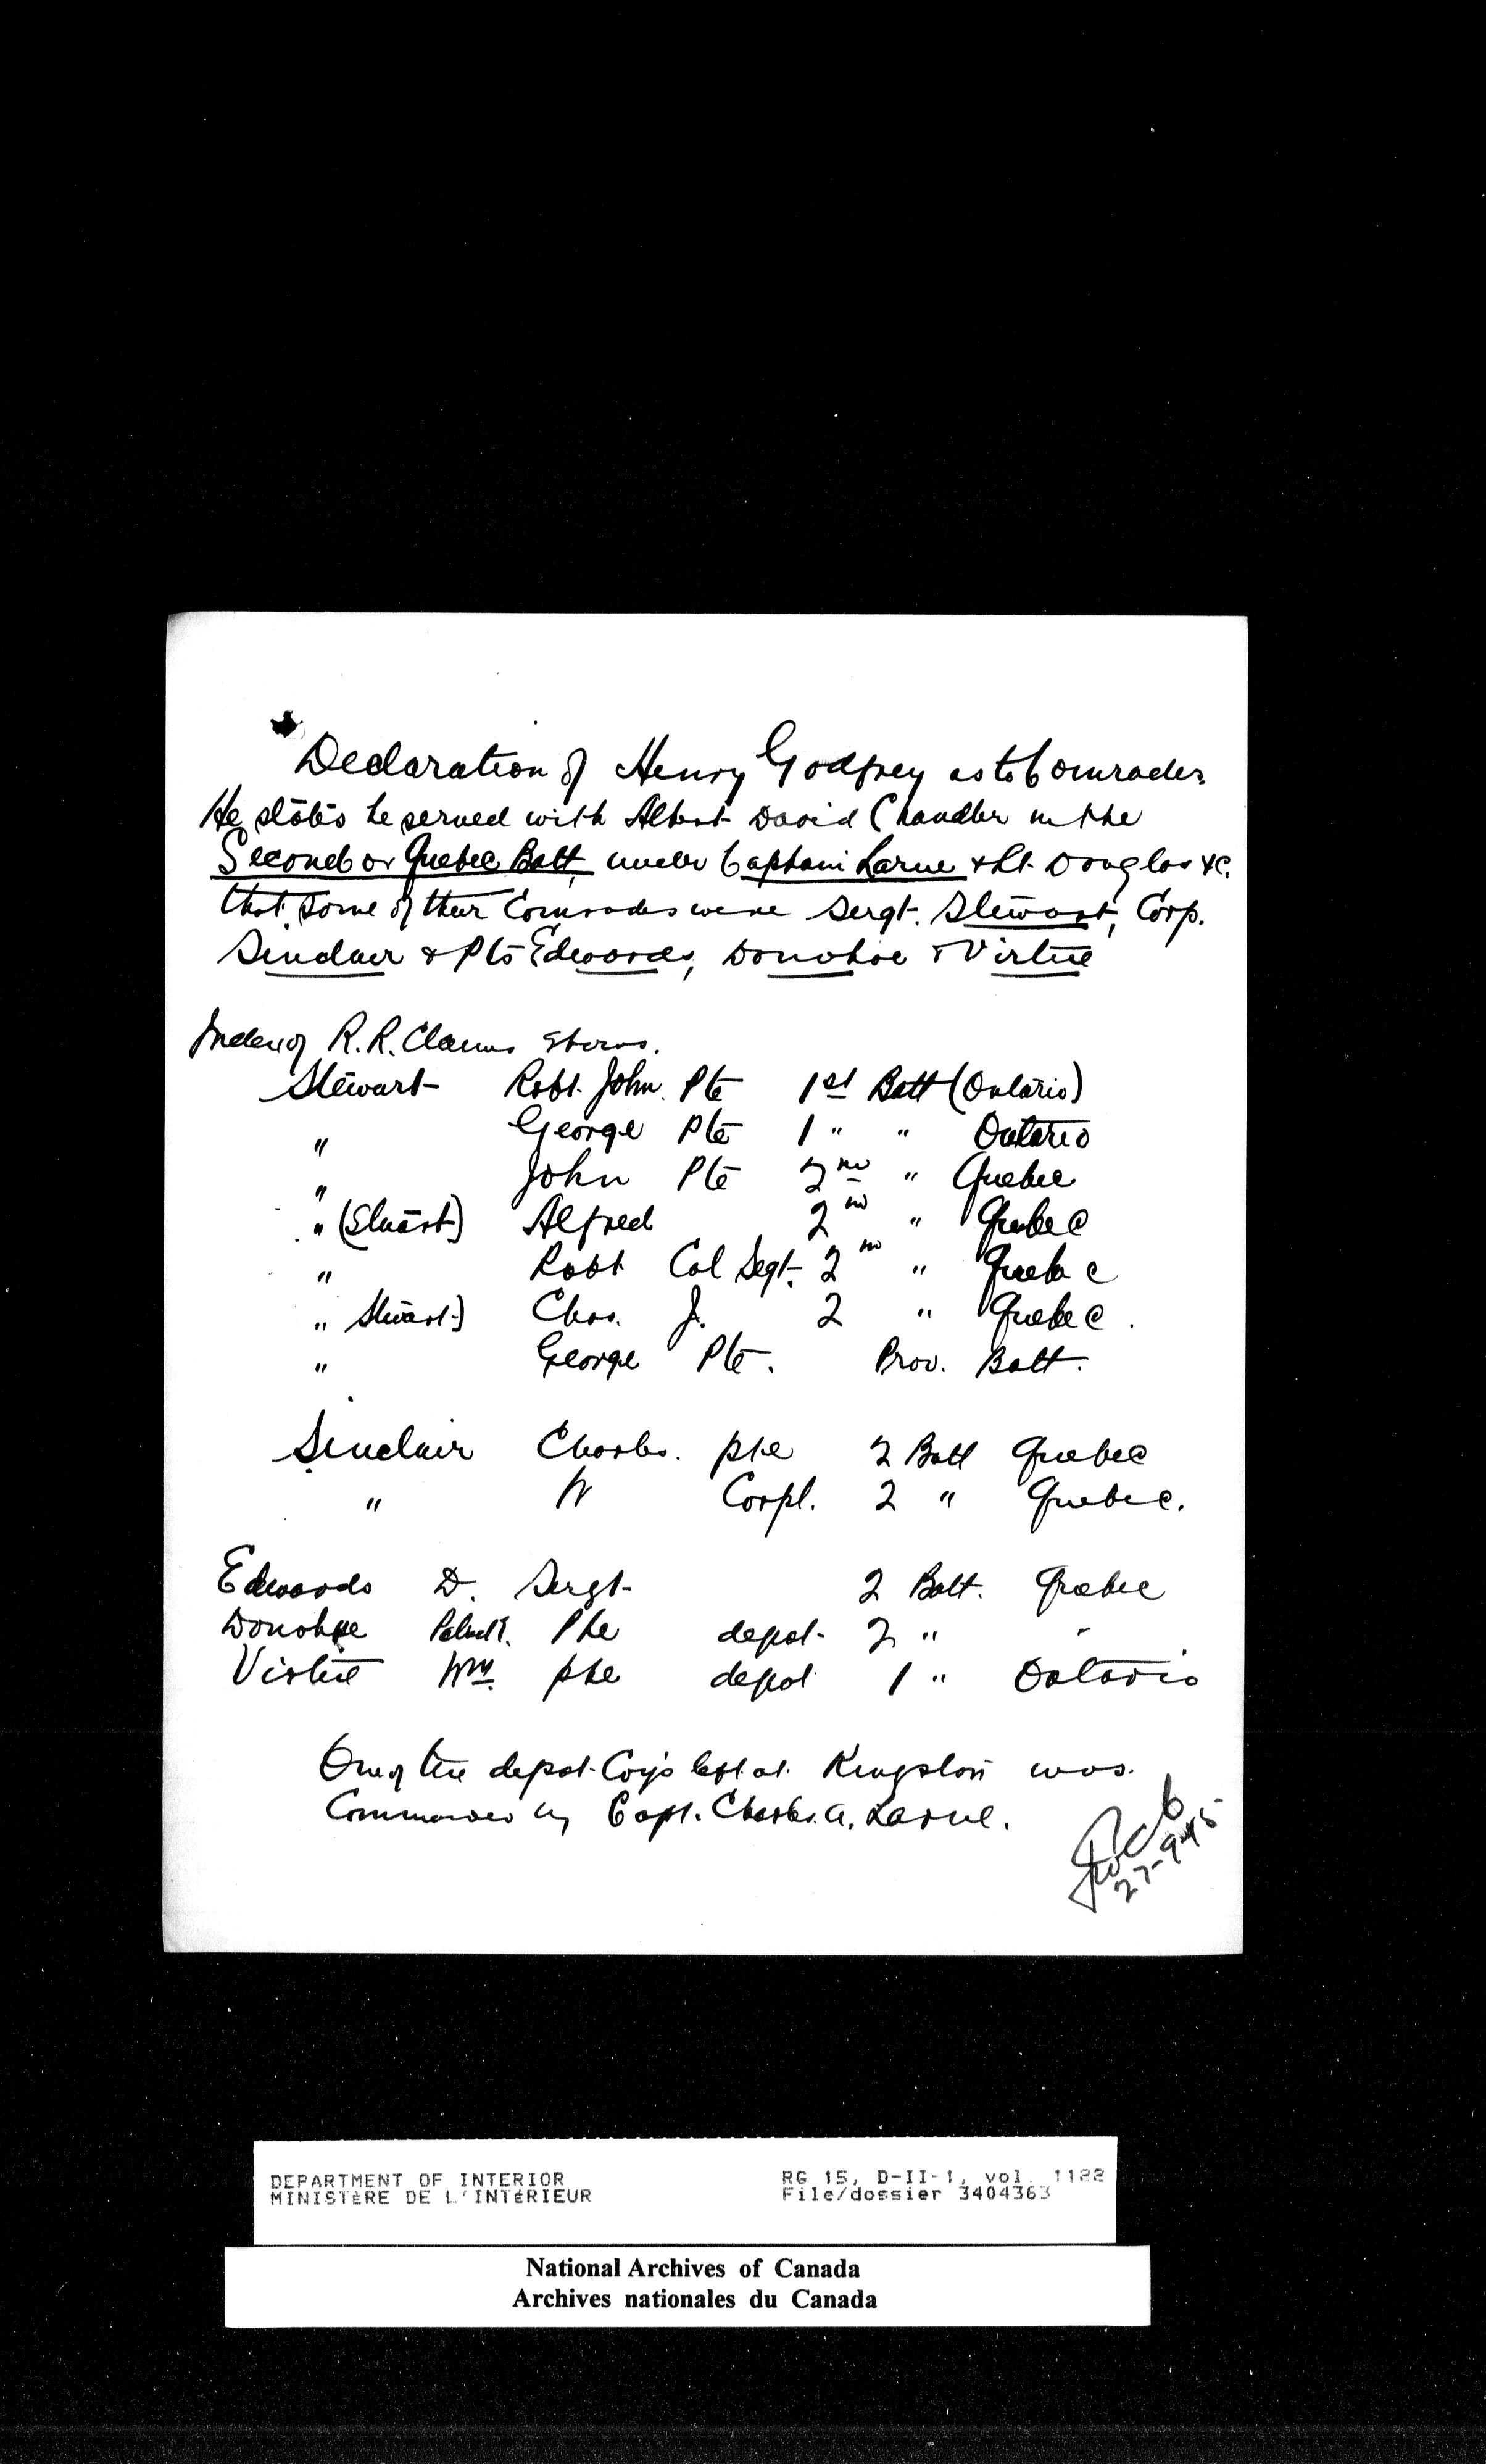 Declaration of Henry Godfrey as to Comrades.
He states he served with Albert David Chandler in the
Second or Quebec Batt, under Captain Larue & Lt. Douglas &c.
that some of their Comrades were Sergt. Stewart, Corp.
Sinclair & Pts Edwards, Donohoe & Virtue
Index of R.R. Claims shows.
Stewart Robt. John Pte 1st Batt (Ontario)
" George Pte 1 " " Ontario
" John Pte 2nd " Quebec
" (Stuart) Alfred 2nd " Quebec
" Robt Col Segt. 2nd " Quebec
" Stuart) Chas. J. 2 " Quebec.
" George Pte. Prov. Batt.
Sinclair Charles. pte 2 Batt Quebec
" W Corpl. 2 " Quebec.
Edwards D. Sergt 2 Batt. Quebec
Donohoe Patrick. Pte depot 2 " "
Virtue Wm. pte depot 1 " Ontario
One of the depot Coys left at Kingston was
Commanded by Capt. Charles A. Larue.
27-9-15
DEPARTMENT OF INTERIOR RG 15, D-II-1, vol. 1122
MINISTÈRE DE L'INTÉRIEUR File/dossier 3404363
National Archives of Canada
Archives nationales du Canada